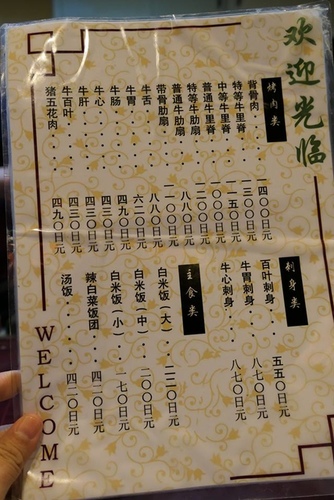 欢迎光临
烤肉类
背骨肉・・・・一四〇〇日元
特等牛里脊・・・一三〇〇日元
中等牛里脊・・・一一五〇日元
普通牛里脊・・・一〇〇〇日元
特等牛肋扇・・・一二〇〇日元
普通牛肋扇・・・八八〇日元
带骨肋扇・・・・一一〇〇日元
牛舌・・・・・八八〇日元
牛胃・・・・・六二〇日元
牛肠・・・・・四九〇日元
牛心・・・・・四三〇日元
牛肝・・・・・四三〇日元
牛百叶・・・・四三〇日元
猪五花肉・・・・四九〇日元
刺身类
百叶刺身・・・五五〇日元
牛胃刺身・・・八七〇日元
牛心刺身・・・八七〇日元
主食类
白米饭(大)・・二二〇日元
白米饭(中)・・二〇〇日元
白米饭(小)・・一七〇日元
辣白菜饭团・・・四二〇日元
汤饭・・・・・四二〇日元
WELCOME